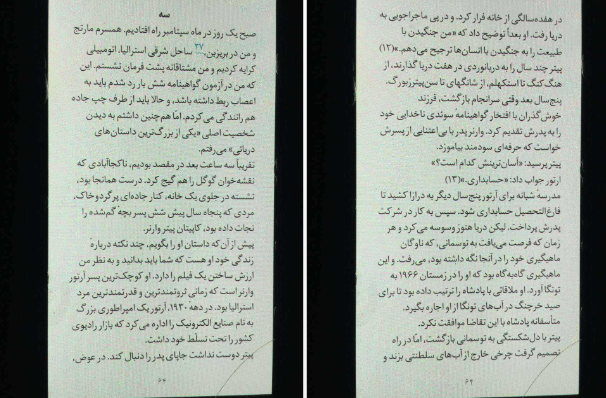 سه
صبح یک روز در ماه سپتامبر راه افتادیم. همسرم مارتج
و من در بریزبین،۲۷ ساحل شرقی استرالیا، اتومبیلی
کرایه کردیم و من مشتاقانه پشت فرمان نشستم. این
که من در آزمون گواهینامه شش بار رد شدم باید به
اعصاب ربط داشته باشد، و حالا باید از طرف چپ جاده
هم رانندگی می‌کردم. اما هم‌چنین داشتم به دیدن
شخصیت اصلی «یکی از بزرگ‌ترین داستان‌های
دریائی» می‌رفتم.
تقریباً سه ساعت بعد در مقصد بودیم، ناکجاآبادی که
نقشه‌خوان گوگل را هم گیج کرد. درست همانجا بود،
نشسته در جلوی یک خانه، کنار جاده‌ای پر گرد و خاک،
مردی که پنجاه سال پیش شش پسر بچهٔ گم‌شده را
نجات داده بود، کاپیتان پیتر وارنر.
پیش از آن که داستان او را بگویم، چند نکته دربارهٔ
زندگی خود او هست که شما باید بدانید و به نظر من
ارزش ساختن یک فیلم را دارد. او کوچک‌ترین پسر آرتور
وارنر است که زمانی ثروتمندترین و قدرتمندترین مرد
استرالیا بود. در دههٔ ۱۹۳۰، آرتور یک امپراطوری بزرگ
به نام صنایع الکترونیک را اداره می‌کرد که بازار رادیوی
کشور را تحت تسلّط خود داشت.
پیتر دوست نداشت جاپای پدر را دنبال کند. در عوض،
۶۴
در هفده‌سالگی از خانه فرار کرد، و در پی ماجراجویی به
دریا رفت. او بعداً توضیح داد که «من جنگیدن با
طبیعت را به جنگیدن با انسان‌ها ترجیح می‌دهم.»(۱۲)
پیتر چند سال را به دریانوردی در هفت دریا گذارند، از
هنگ کنگ تا استکهلم، از شانگهای تا سن‌پیترزبورگ.
پنج سال بعد وقتی سرانجام بازگشت، فرزند
خوش‌گذران با افتخار گواهینامهٔ سوئدی ناخدایی خود
را به پدرش تقدیم کرد. وارنر پدر با بی‌اعتنایی از پسرش
خواست که حرفه‌ای سودمند بیاموزد.
پیتر پرسید: «آسان‌ترینش کدام است؟»
آرتور جواب داد: «حسابداری.»(۱۳)
مدرسهٔ شبانه برای آرتور پنج سال دیگر به درازا کشید تا
فارغ‌التحصیل حسابداری شود. سپس به کار در شرکت
پدرش پرداخت. لیکن دریا هنوز وسوسه می‌کرد و هر
زمان که فرصت می‌یافت به توسمانی، که ناوگان
ماهیگیری خود را در آنجا نگه داشته بود، می‌رفت. و این
ماهیگیری گاه‌به‌گاه بود که او را در زمستان ۱۹۶۶ به
تونگا آورد. او ملاقاتی با پادشاه را ترتیب داده بود تا برای
صید خرچنگ در آب‌های تونگا از او اجازه بگیرد.
متأسفانه پادشاه با این تقاضا موافقت نکرد.
پیتر با دل‌شکستگی به توسمانی بازگشت، اما در راه
تصمیم گرفت چرخی خارج از آب‌های سلطنتی بزند و